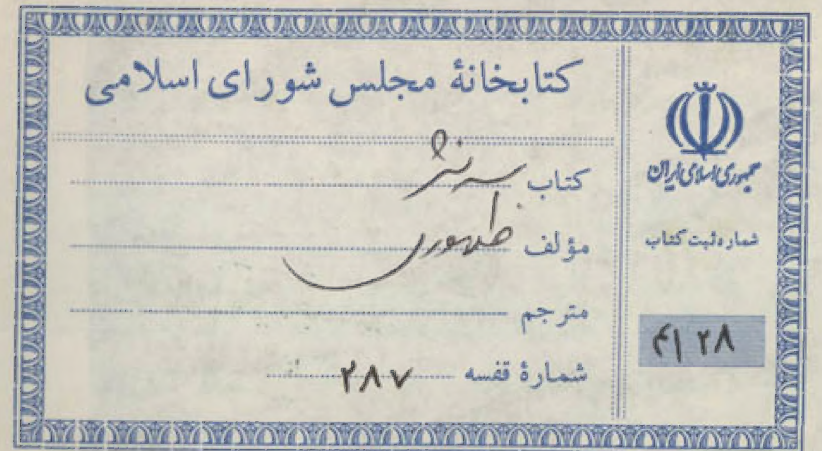 کتابخانهٔ مجلس شورای اسلامی
کتاب سه نثر
مؤلف ظهوری
مترجم
شمارهٔ قفسه ۲۸۷
جمهوری اسلامی ایران
شماره ثبت کتاب
۴۱۲۸